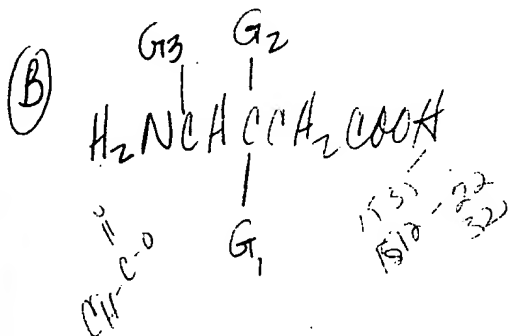 G3 G2
B H2NCHCCH2COOH
G1
CH-C-O